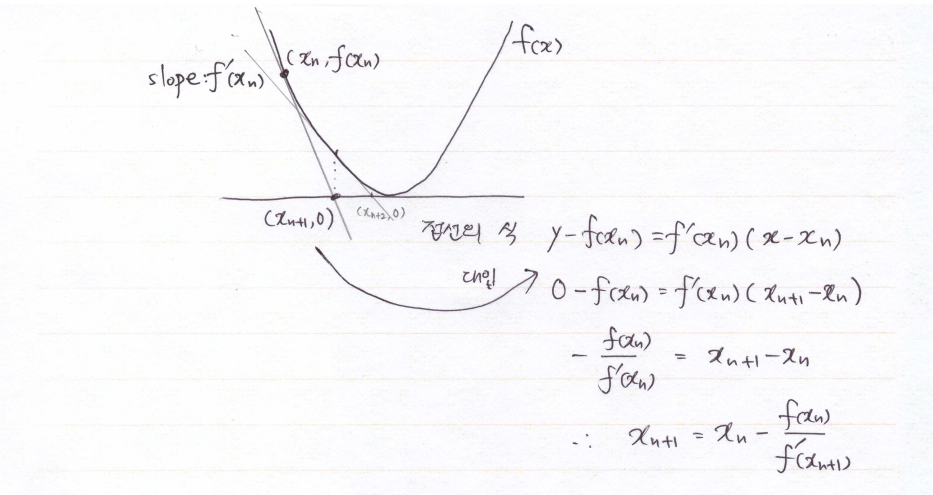 f(x)
(xₙ, f(xₙ)
slope: f'(xₙ)
(xₙ₊₁, 0)
(xₙ₊₂, 0)
접선의 식 y - f(xₙ) = f'(xₙ)(x - xₙ)
대입 0 - f(xₙ) = f'(xₙ)(xₙ₊₁ - xₙ)
- f(xₙ) / f'(xₙ) = xₙ₊₁ - xₙ
∴ xₙ₊₁ = xₙ - f(xₙ) / f'(xₙ₊₁)